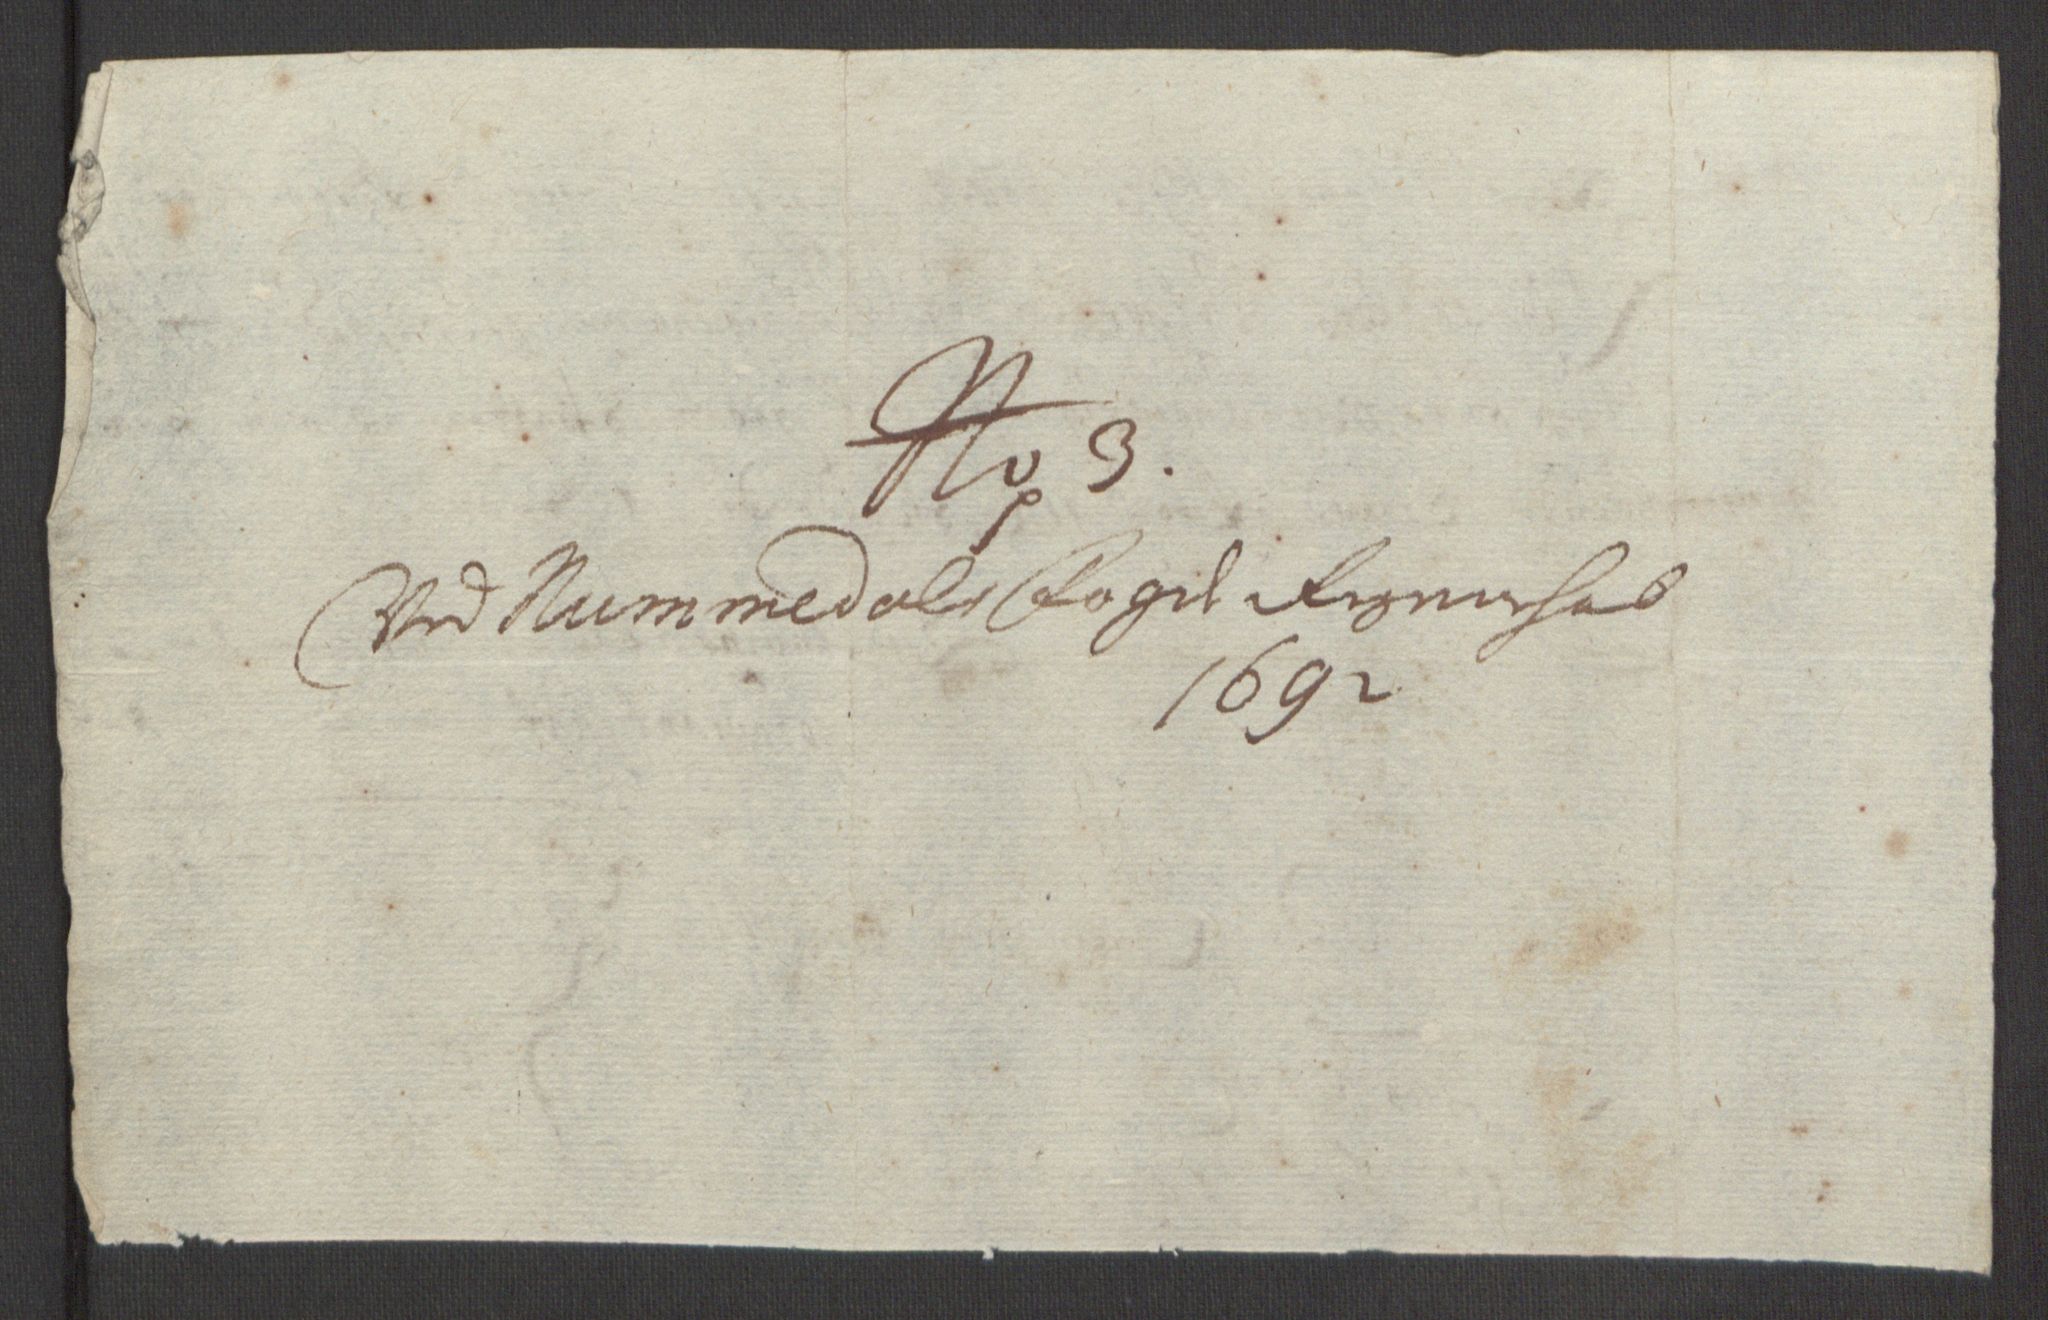 No 3.
Ved Nummedals Fogd. Regenschab
1692